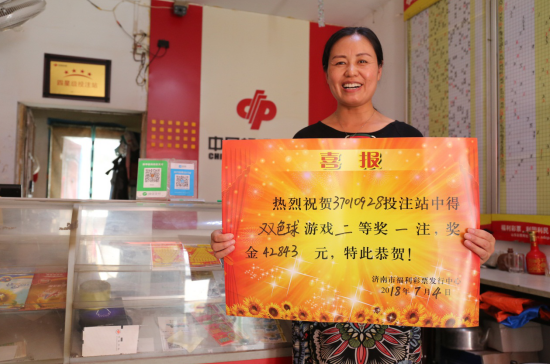 中国
CHI
喜报
热烈祝贺37010928投注站中得
双色球游戏二等奖一注,奖
金42843元,特此恭贺!
济南市福利彩票发行中心
2018年7月4日